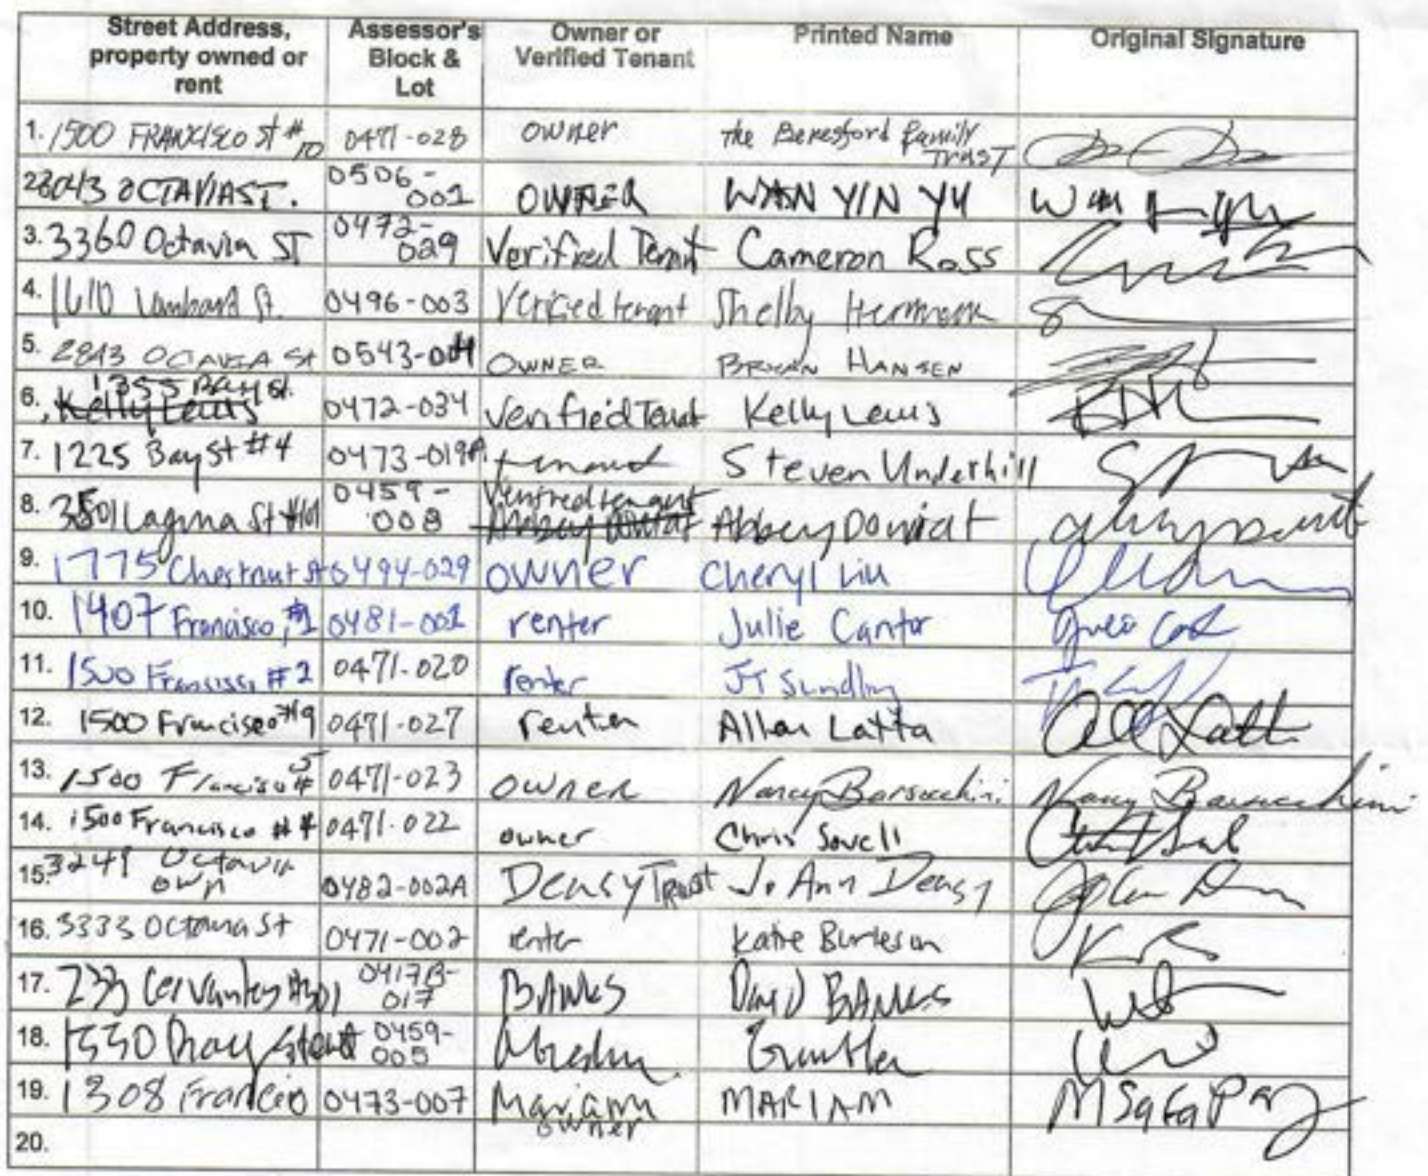 Street Address, property owned or rent
Assessor's Block & Lot
Owner or Verified Tenant
Printed Name
Original Signature
1. 1500 FRANCISCO St #10 0471-028 owner The Beresford Family TRUST
2. 3043 OCTAVIA ST. 0506-001 OWNER WAN YIN YU
3. 3360 Octavia ST 0472-029 Verified Tenant Cameron Ross
4. 1610 Lombard St. 0496-003 Verified tenant Shelby
5. 2843 OCTAVIA St 0543-004 OWNER BRYAN HANSEN
6. 1355 BAY St. Kelly Lewis 0472-034 Verified Tenant Kelly Lewis
7. 1225 Bay St #4 0473-019A tenant Steven Underhill
8. 3501 Laguna St #101 0459-008 Verified tenant Abbey
9. 1775 Chestnut St 0494-029 owner Cheryl Liu
10. 1407 Francisco, #1 0481-001 renter Julie Cantor
11. 1500 Francisco #2 0471-020 renter JT
12. 1500 Francisco #9 0471-027 renter Allan Latta
13. 1500 Francisco #5 0471-023 owner Nancy Barsocchini Nancy Barsocchini
14. 1500 Francisco #4 0471-022 owner Chris Sovell
15. 3249 Octavia own 0482-002A Deasy Trust Jo Ann Deasy
16. 3333 Octavia St 0471-002 renter Katie Burleson
17. 233 Cervantes #301 0417B-017 BANKS David BANKS
18. 1550 0459-005
19. 1308 Francisco 0473-007 Mariam owner MARIAM
20.